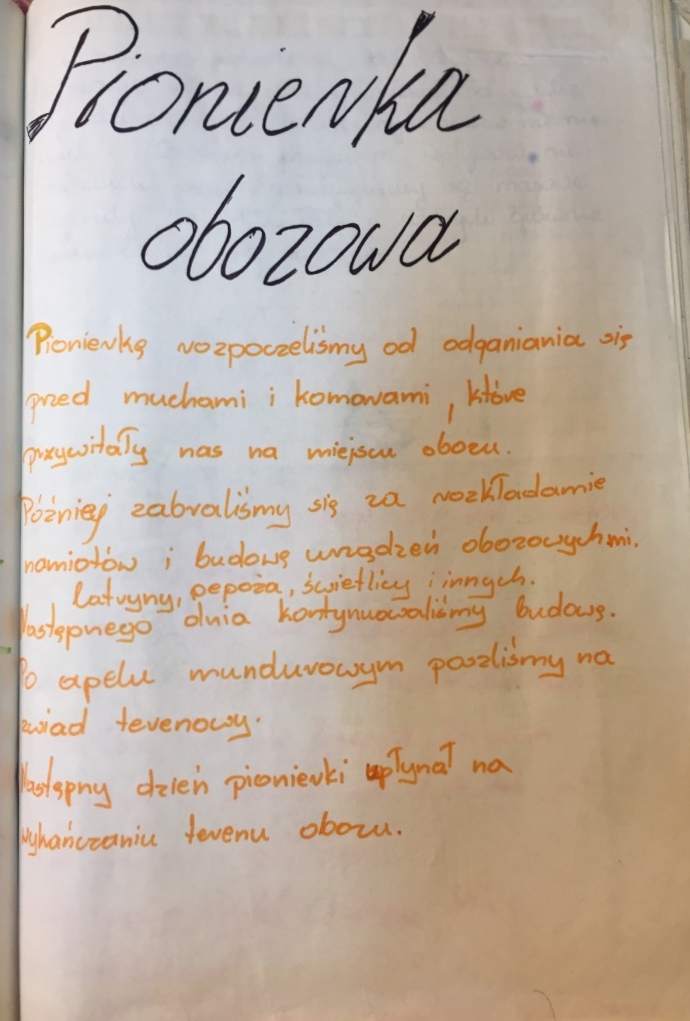 Pionierka
obozowa
Pionierkę rozpoczeliśmy od odganiania się
przed muchami i komarami, które
przywitały nas na miejscu obozu.
Później zabraliśmy się za rozkładanie
namiotów i budowę urządzeń obozowych mi.
latryny, pepoża, świetlicy i innych.
Następnego dnia kontynuowaliśmy budowę.
Po apelu mundurowym poszliśmy na
zwiad terenowy.
Następny dzień pionierki upłynął na
wykańczaniu terenu obozu.